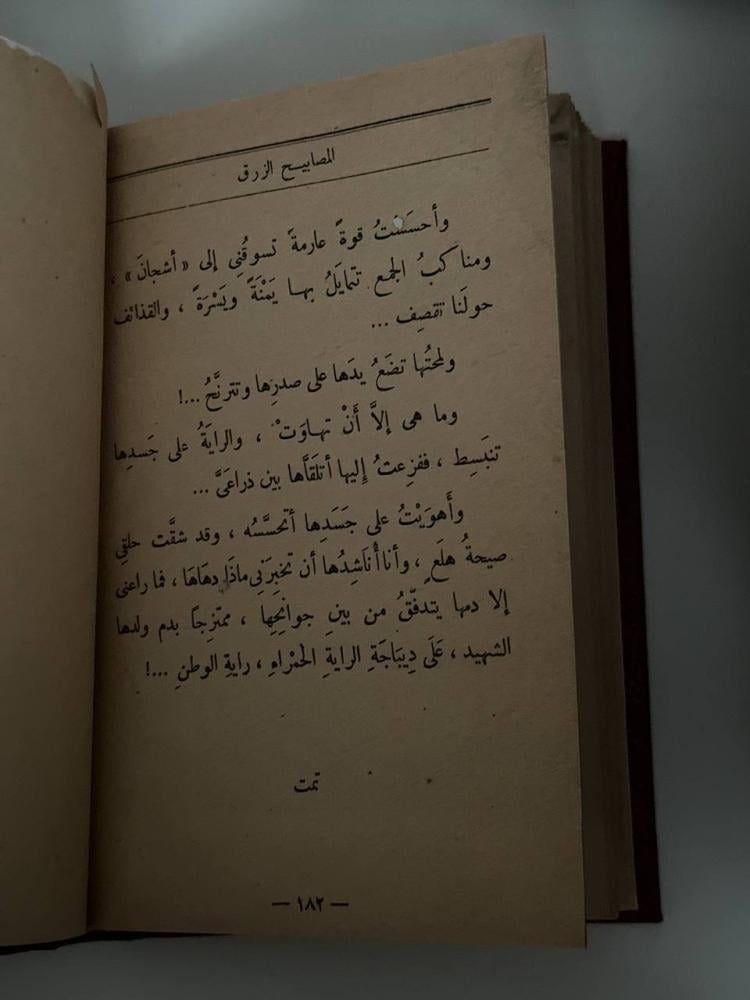 المصابيح الزرق
وأحسَسْتُ قوةً عارمةً تسوقُنِي إلى «أشجانَ» ،
ومناكبُ الجمع تتمايَلُ بها يَمْنَةً ويَسْرَةً ، والقذائف
حولَنا تقصِف ...
ولمحتُها تضَعُ يدَها على صدرِها وتترنَّحُ ...!
وما هى إلاَّ أَنْ تهاوَتْ ، والرايَةُ على جَسدِها
تنبَسِط ، ففزِعتُ إليها أتلَقَّاها بين ذراعَىَّ ...
وأَهوَيْتُ على جَسَدِها أتحسَّسُه ، وقد شقَّت حلقِي
صيحةُ هلَعٍ ، وأنا أُناشِدُها أن تخبِرَنِي ماذَا دهَاهَا ، فما راعنى
إلا دمها يتدفَّقُ من بينِ جوانِحِها ، ممتزِجاً بدم ولدها
الشهيد ، عَلَى دِيبَاجَةِ الرايةِ الحَمْراءِ ، رايةِ الوطنِ ...!
تمت
— ١٨٢ —